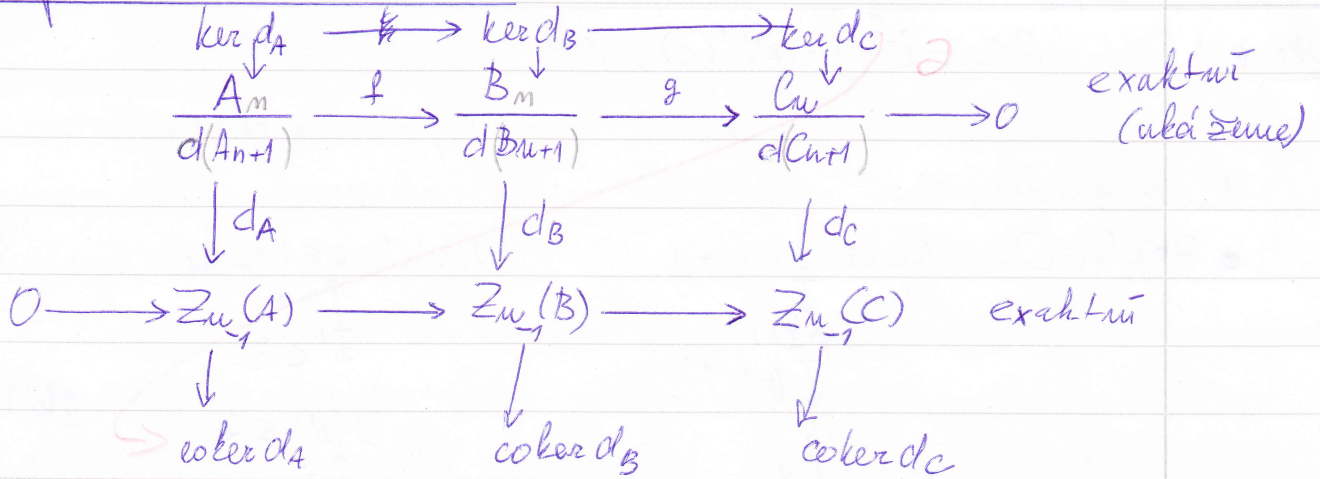 ker d_A → ker d_B → ker d_C
A_n / d(A_{n+1}) →f B_n / d(B_{n+1}) →g C_n / d(C_{n+1}) → 0 exaktní (ukážeme)
↓ d_A ↓ d_B ↓ d_C ∂
0 → Z_{n-1}(A) → Z_{n-1}(B) → Z_{n-1}(C) exaktní
coker d_A coker d_B coker d_C